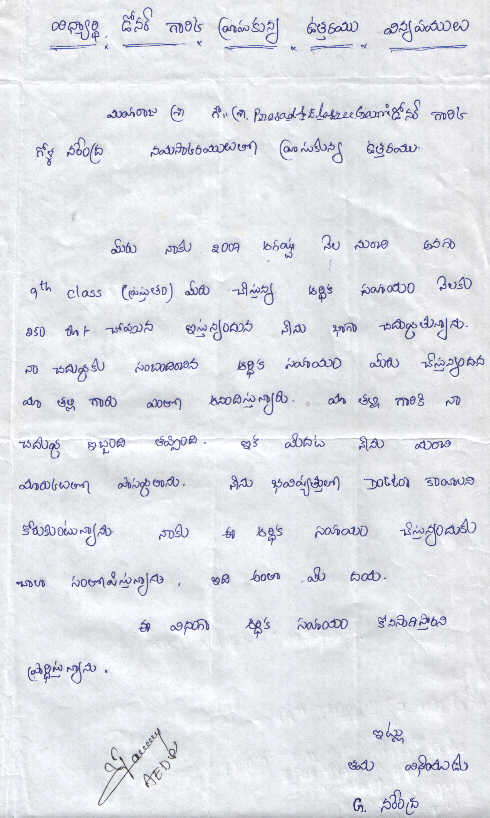 విద్యార్థి డోనర్ గారికి వ్రాసుకున్న ఉత్తరము విన్నపములు
మహారాజ శ్రీ గౌ. శ్రీ. Prasad డోనర్ గారికి
గొళ్ళ నరేంద్ర నమస్కారములుతో వ్రాసుకున్న ఉత్తరము.
మీరు నాకు 2009 ఆగష్టు నెల నుంచి అనగా
9th class (ప్రస్తుతం) మీరు చేస్తున్న ఆర్థిక సహాయం నెలకు
250 చొప్పున ఇస్తున్నందున నేను బాగా చదువుతున్నాను.
నా చదువుకు సంబంధించిన ఆర్థిక సహాయం మీరు చేస్తున్నందున
మా తల్లి గారు ఎంతో ఆనందిస్తున్నారు. మా తల్లి గారికి నా
చదువు ఇబ్బంది తప్పింది. ఇక మీదట నేను మంచి
మార్కులతో పాసవుతాను. నేను భవిష్యత్తులో Doctor కావాలని
కోరుకుంటున్నాను నాకు ఈ ఆర్థిక సహాయం చేస్తున్నందుకు
చాలా సంతోషిస్తున్నాను, ఇది అంతా మీ దయ.
ఈ విధంగా ఆర్థిక సహాయం కొనసాగిస్తారని
ప్రార్థిస్తున్నాను.
ఇట్లు
తమ విధేయుడు
G. నరేంద్ర
AEDP